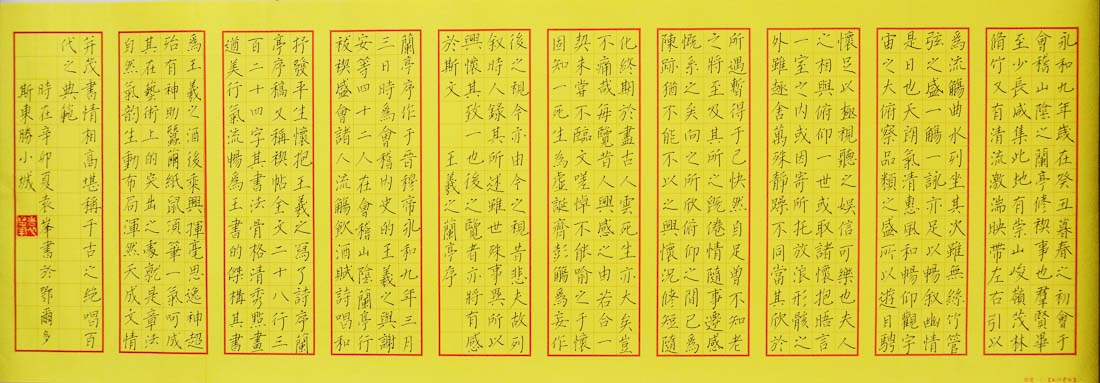 永和九年歲在癸丑暮春之初會于
會稽山陰之蘭亭修禊事也羣賢畢
至少長咸集此地有崇山峻嶺茂林
脩竹又有清流激湍映帶左右引以
為流觴曲水列坐其次雖無絲竹管
弦之盛一觴一詠亦足以暢叙幽情
是日也天朗氣清惠風和暢仰觀宇
宙之大俯察品類之盛所以遊目騁
懷足以極視聽之娛信可樂也夫人
之相與俯仰一世或取諸懷抱晤言
一室之内或因寄所托放浪形骸之
外雖趣舍萬殊靜躁不同當其欣於
所遇暫得于己快然自足曾不知老
之將至及其所之既倦情隨事遷感
慨系之矣向之所欣俯仰之間已為
陳跡猶不能不以之興懷況修短隨
化終期於盡古人雲死生亦大矣豈
不痛哉每覽昔人興感之由若合一
契未嘗不臨文嗟悼不能喻之于懷
固知一死生為虛誕齊彭觴為妄作
後之視今亦由今之視昔悲夫故列
叙時人録其所述雖世殊事異所以
興懷其致一也後之覽者亦將有感
於斯文 王羲之蘭亭序
蘭亭序作于晉穆帝永和九年三月
三日時為會稽内史的王羲之與謝
安等四十二人在會稽山陰蘭亭行
祓禊盛會諸人流觴飲酒賦詩唱和
抒發平生懷抱王羲之為之詩序蘭
亭序稿又稱禊帖全文二十八行三
百二十四字其書法骨格清秀點畫
遒美行氣流暢為王書的傑構其書
為王羲之酒後乘興揮毫思逸神超
殆有神助蠶繭紙鼠須筆一氣呵成
其在藝術上的突出之處就是章法
自然氣韵生動布局渾然天成文情
并茂書情相高堪稱千古之絶唱百
代之典範
時在辛卯夏袁峯書於鄂爾多
斯東勝小城